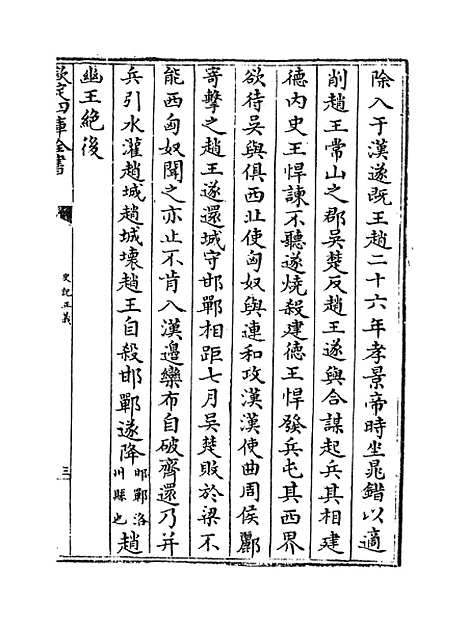 除入于漢遂既王趙二十六年孝景帝時坐晁錯以適
削趙王常山之郡吳楚反趙王遂與合謀起兵其相建
德內史王悍諫不聽遂燒殺建德王悍發兵屯其西界
欲待吳與俱西北使匈奴與連和攻漢漢使曲周侯酈
寄擊之趙王遂還城守邯鄲相距七月吳楚敗於梁不
能西匈奴聞之亦止不肯入漢邊欒布自破齊還乃并
兵引水灌趙城趙城壞趙王自殺邯鄲遂降邯鄲洛州縣也趙
幽王絕後
欽定四庫全書
史記正義
三